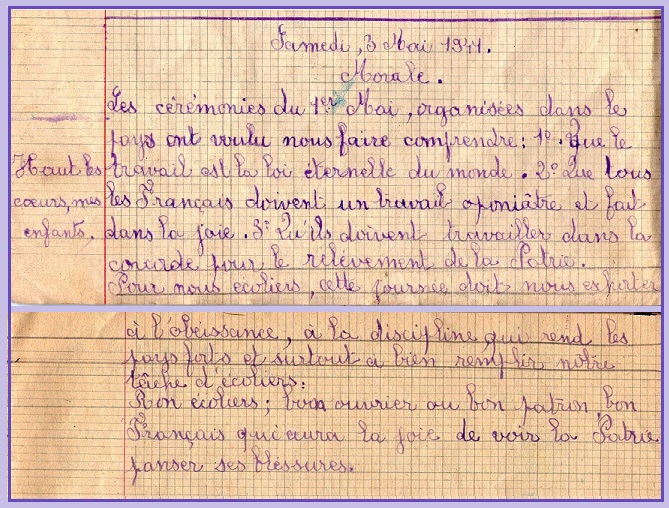 Samedi, 3 Mai 1941.
Morale.
Les cérémonies du 1er Mai, organisées dans le
pays ont voulu nous faire comprendre: 1º. Que le
travail est la loi éternelle du monde. 2º Que tous
les Français doivent un travail oponiâtre et fait
dans la joie. 3º Qu'ils doivent travailler dans la
concorde pour le relèvement de la Patrie.
Pour nous écoliers, cette journée doit nous exhorter
Haut les
cœurs, mes
enfants.
à l'obéissance, à la discipline qui rend les
pays forts et surtout à bien remplir notre
tâche d'écoliers:
Bon écoliers; bon ouvrier ou bon patron, bon
Français qui aura la joie de voir la Patrie
panser ses bléssures.